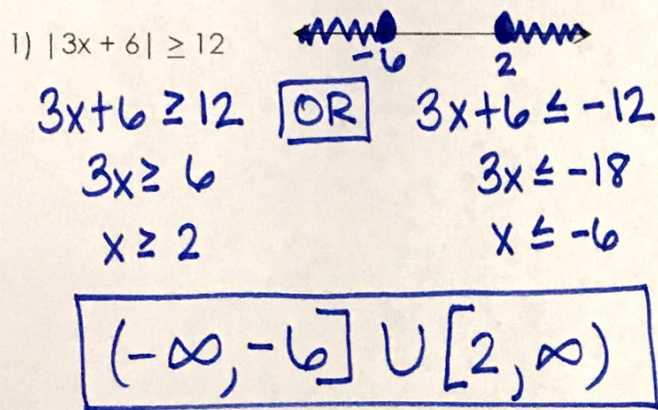 1) |3x + 6| ≥ 12
-6 2
3x+6 ≥ 12 OR 3x+6 ≤ -12
3x ≥ 6 3x ≤ -18
x ≥ 2 x ≤ -6
(-∞, -6] ∪ [2, ∞)